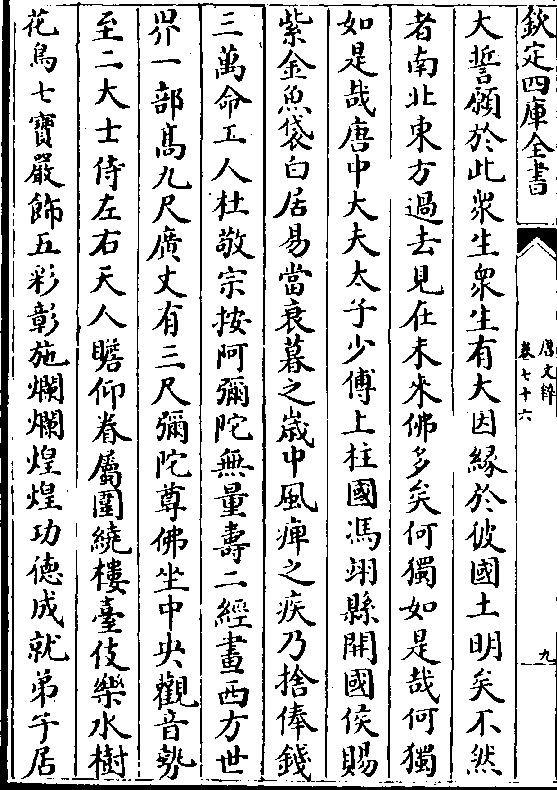 欽定四庫全書
唐文粹
卷七十六
九
大誓願於此衆生衆生有大因緣於彼國土明矣不然
者南北東方過去見在未來佛多矣何獨如是哉何獨
如是哉唐中大夫太子少傅上柱國馮翊縣開國侯賜
紫金魚袋白居易當衰暮之歲中風痺之疾乃捨俸錢
三萬命工人杜敬宗按阿彌陀無量壽二經畫西方世
界一部高九尺廣丈有三尺彌陀尊佛坐中央觀音勢
至二大士侍左右天人瞻仰眷屬圍繞樓臺伎樂水樹
花鳥七寶嚴飾五彩彰施爛爛煌煌功德成就弟子居